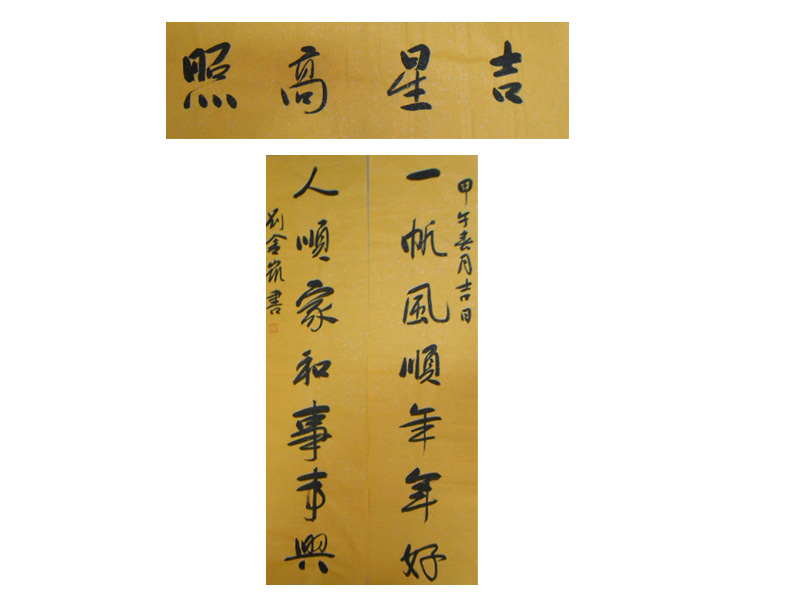 吉星高照
甲午春月吉日
一帆風順年年好
人順家和事事興
刘金書